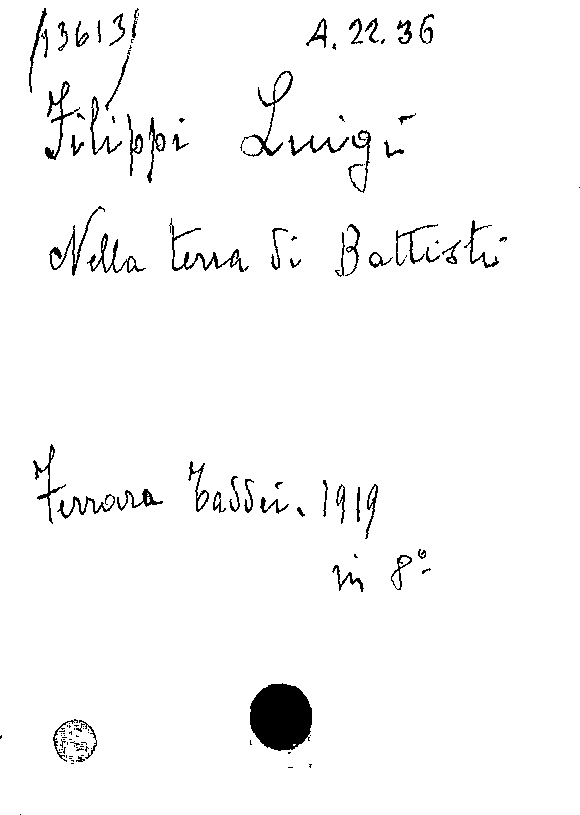 (13613) A. 22. 36
Filippi Luigi
Nella terra di Battisti
Ferrara Taddei. 1919
in 8°